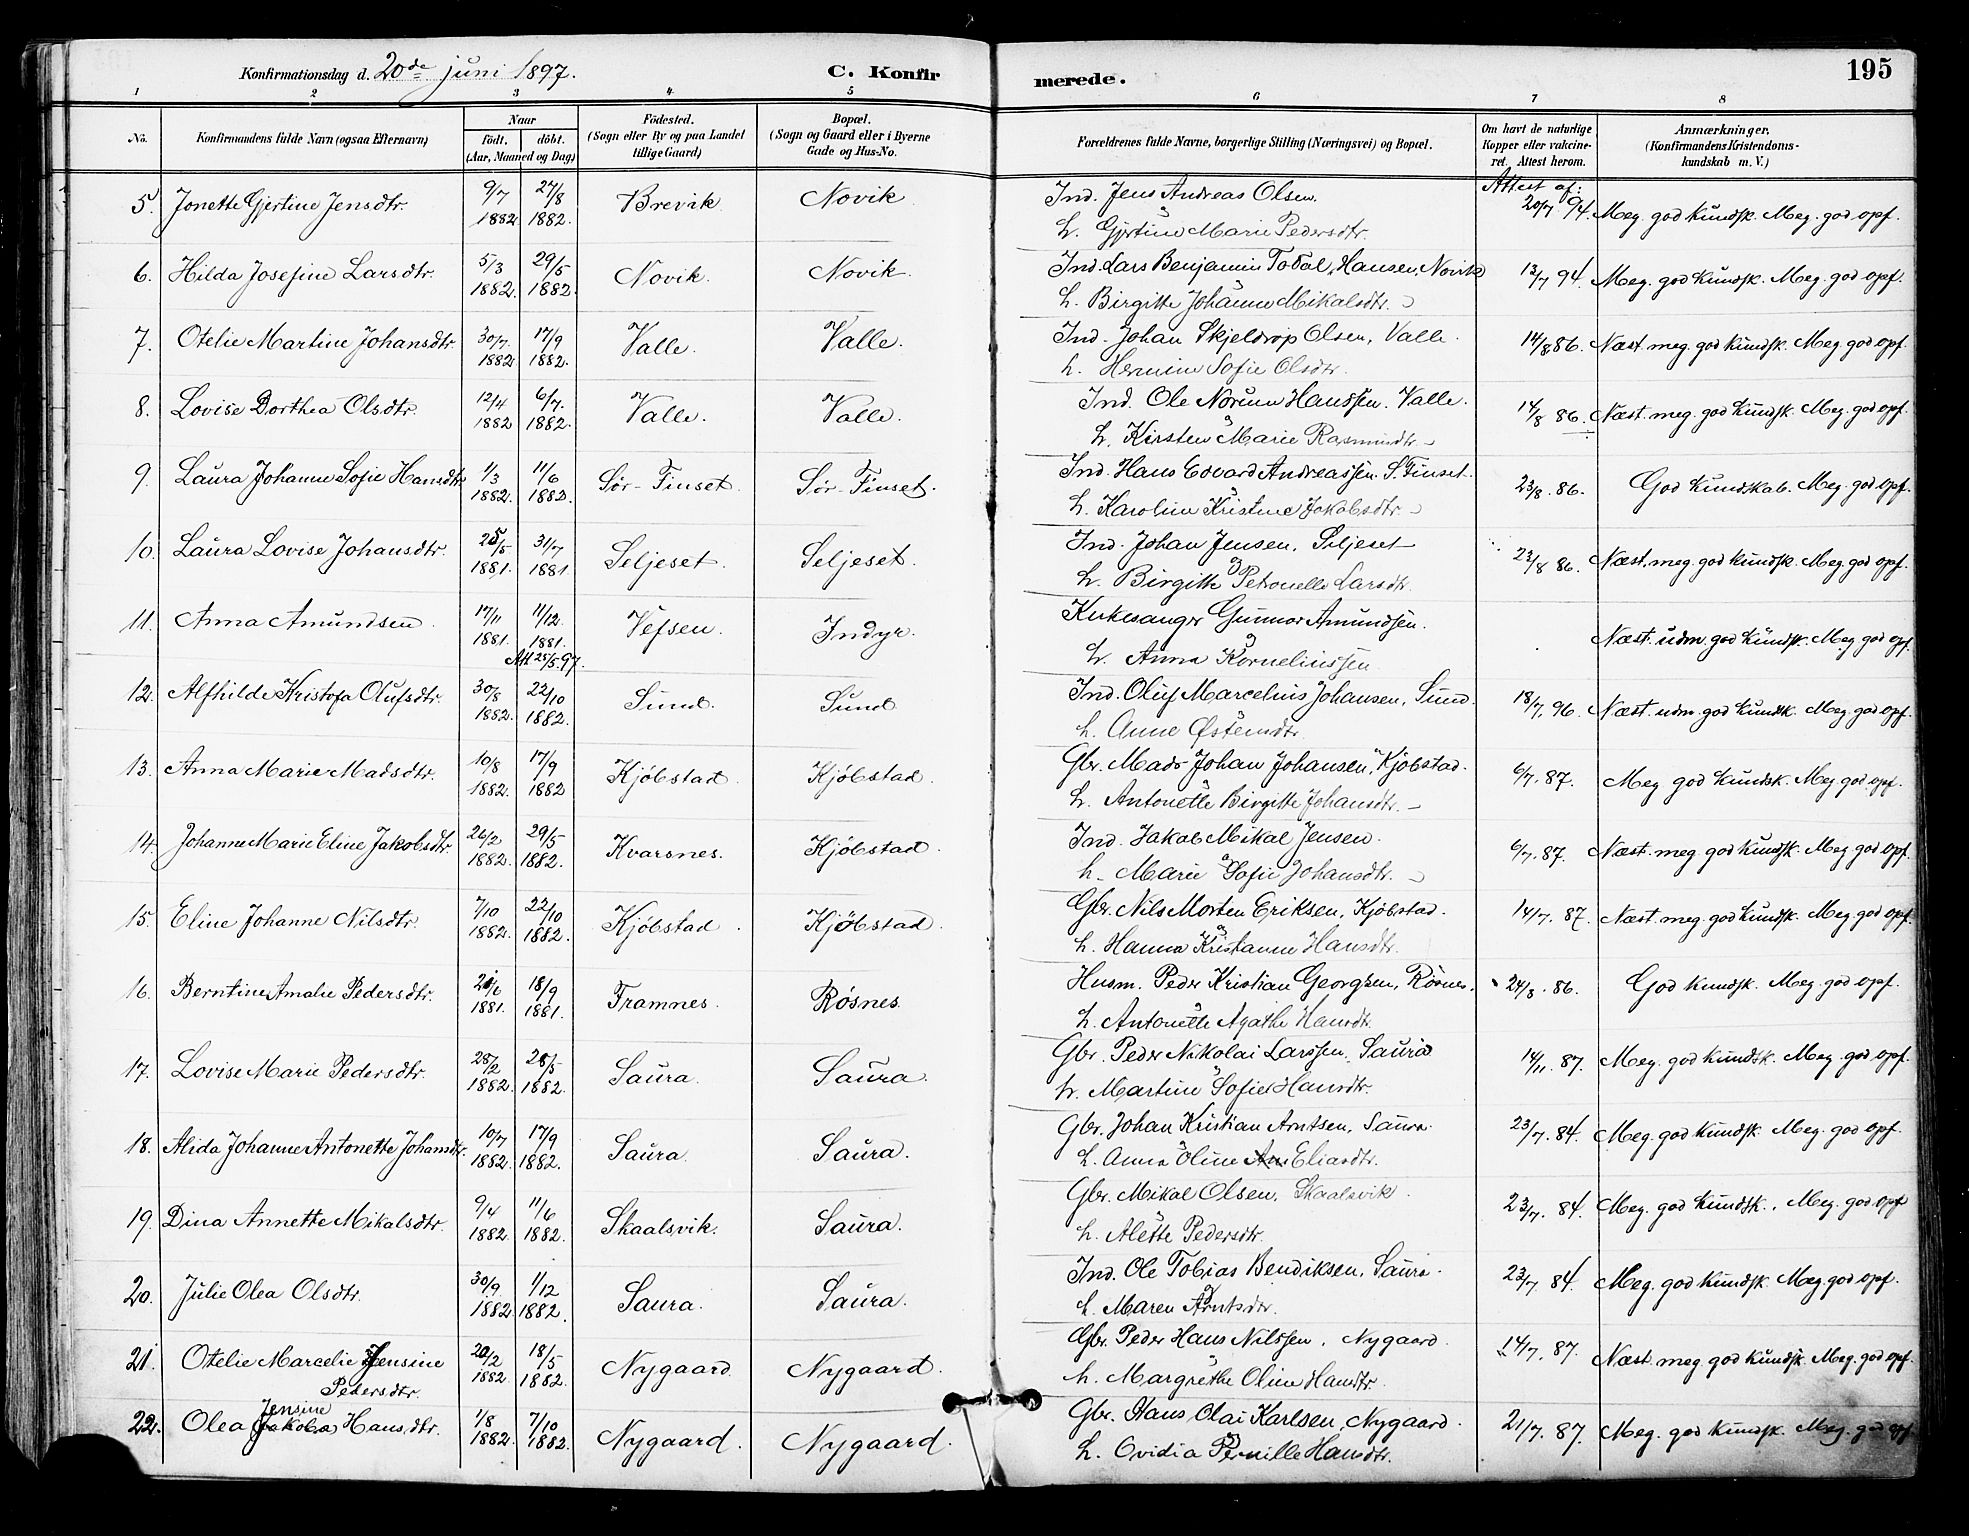 Konfirmationsdag d. 20de juni 1897. C. Konfirmerede. 195
1 2 3 4 5 6 7 8
No. Konfirmandens fulde Navn (ogsaa Efternavn) Naar født, døbt. (Aar, Maaned og Dag) Fødested. (Sogn eller By og paa Landet tillige Gaard) Bopæl. (Sogn og Gaard eller i Byerne Gade og Hus-No. Forældrenes fulde Navne, borgerlige Stilling (Næringsvei) og Bopæl. Om havt de naturlige Kopper eller vakcineret. Attest herom. Anmærkninger. (Konfirmandens Kristendomskundskab m. V.)
5. Jonette Gjertine Jensdtr. 9/7 1882 27/8 1882. Brevik Novik Ind. Jens Andreas Olsen. Attest af: 20/7 94. Meg god kundsk. Meg. god opf.
h. Gjertine Marie Pedersdtr.
6. Hilda Josefine Larsdtr. 5/3 1882. 29/5 1882. Novik. Novik. Ind. Lars Benjamin Hansen, Novik 13/7 94. Meg. god kundsk. Meg. god opf.
h. Birgitte Johanne Mikalsdtr.
7. Otelie Martine Johansdtr. 30/7 1882 17/9 1882. Valle. Valle. Ind. Johan Skjeldrop Olsen, Valle. 14/8 86. Næst. meg. god kundsk. Meg. god opf.
h. Hermine Sofie Olsdtr.
8. Lovise Dorthea Olsdtr. 12/4 1882 6/7. 1882. Valle. Valle. Ind. Ole Norum Hanssen. Valle. 14/8 86. Næst. meg. god kundsk. Meg. god opf.
h. Kirsten Marie Rasmusdtr.
9. Laura Johanne Sofie Hansdtr 1/3 1882. 11/6 1882. Sör-Finset. Sör-Finset. Ind. Hans Edvard Andreassen. S. Finset. 23/8. 86. God kundskab. Meg. god opf.
h. Karoline Kristine Jakobsdtr.
10. Laura Lovise Johansdtr. 25/5 1881. 31/7 1881 Seljeset. Seljeset. Ind. Johan Jensen. Seljeset 23/8 86. Næst. meg. god kundsk. Meg. god opf.
h. Birgitte Petronelle Larsdtr.
11. Anna Amundsen 17/11 1881. 11/12. 1881. Att 25/5.97. Vefsen. Indyr. Kirkesanger Gunnar Amundsen. Næst. udm. god kundsk. Meg. god opf.
h. Anna Kornelinssen.
12. Alfhilde Kristofa Olufsdtr. 30/8 1882. 22/10 1882. Sund. Sund Ind. Oluf Marcelius Johansen, Sund. 18/7. 96. Næst. udm. god kundsk. Meg. god opf.
h. Anne Østensdtr.
13. Anna Marie Madsdtr. 10/8 1882. 17/9 1882 Kjöbstad. Kjöbstad. Gbr. Mads Johan Johansen, Kjöbstad. 6/7. 87. Meg god kundsk. Meg god opf.
h. Antonette Birgitte Johansdtr.
14. Johanne Marie Eline Jakobsdtr. 26/2 1882. 29/5 1882. Kvarsnes. Kjöbstad. Ind. Jakob Mikal Jensen. 6/7. 87. Næst. meg. god kundsk. Meg. god opf.
h. Marie Sofie Johansdtr.
15. Eline Johanne Nilsdtr. 7/10 1882. 22/10 1882. Kjöbstad. Kjöbstad. Gbr. Nils Morten Eriksen, Kjöbstad. 14/7. 87. Næst. meg. god kundsk. Meg. god opf.
h. Hanna Kristanne Hansdtr.
16. Berntine Amalie Pedersdtr. 21/6 1881. 18/9 1881. Framnes. Røsnes. Husm. Peder Kristian Georgsen, Rösnes. 24/8. 86. God kundsk. Meg. god opf.
h. Antonette Agathe Hansdtr.
17. Lovise Marie Pedersdtr. 28/2 1882. 28/5 1882. Saura. Saura. Gbr. Peder Nikolai Larssen, Saura 14/11. 87. Meg. god kundsk. Meg. god opf.
h. Martine Sofie Hansdtr.
18. Alida Johanne Antonette Johansdtr. 10/7 1882. 17/9 1882. Saura. Saura. Gbr. Johan Kristian Arntsen, Saura. 23/7. 84. Meg. god kundsk. Meg. god opf.
h. Anna Oline Eliasdtr.
19. Dina Annette Mikalsdtr. 9/4 1882. 11/6 1882. Skaalsvik. Saura. Gbr. Mikal Olsen, Skaalsvik. 23/7. 84. Meg. god kundsk. Meg. god opf
h. Alette Pedersdtr.
20. Julie Olea Olsdtr. 30/9 1882. 1/12 1882. Saura. Saura. Ind. Ole Tobias Bendiksen, Saura. 23/7. 84. Meg. god kundsk. Meg. god opf.
h. Maren Arntsdtr.
21. Otelie Marcelie Jensine 20/2 1882. 18/5 1882. Nygaard. Nygaard. Gbr. Peder Hans Nilssen, Nygaard. 14/7. 87. Næst. meg. god kundsk. Meg. god opf.
Pedersdtr. h. Margrethe Oline Hansdtr.
22. Olea Jensine Jakoba Hansdtr. 1/8 1882. 7/10 1882. Nygaard. Nygaard. Gbr. Hans Olai Karlsen, Nygaard. 21/7. 87. Meg. god kundsk. Meg. god opf
h. Ovidia Pernille Hansdtr.